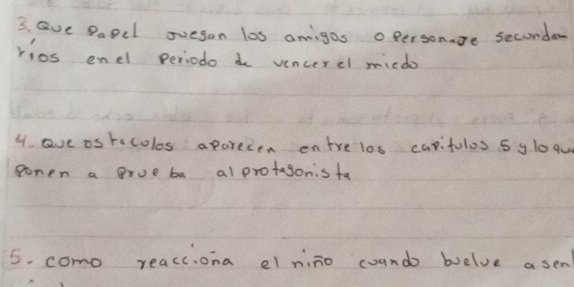 3. Que Papel juegan los amigos o Personaje secunda-
rios en el Periodo de vencer el miedo
4. Que ostacolos aparecen entre los capitulos 5 y loqu
ponen a prueba al protagonista
5. como reacciona el niño cuando buelve a sen